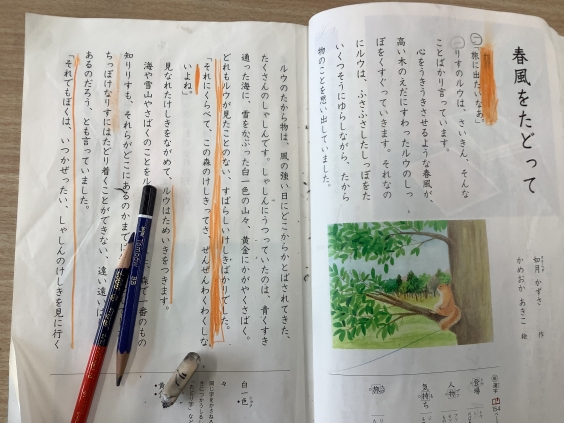 春風をたどって
如月 かずさ 作
かめおか あきこ 絵
「旅に出たいなあ。」
りすのルウは、さいきん、そんな
ことばかり言っています。
心をうきうきさせるような春風が、
高い木のえだにすわったルウのしっ
ぽをくすぐっていきます。それなの
にルウは、ふさふさしたしっぽをた
いくつそうにゆらしながら、たから
物のことを思い出していました。
ルウのたから物は、風の強い日にどこからかとばされてきた、
たくさんのしゃしんです。しゃしんにうつっていたのは、青くすき
通った海に、雪をかぶった白一色の山々、黄金にかがやくさばく。
どれもルウが見たことのない、すばらしいけしきばかりでした。
「それにくらべて、この森のけしきってさ、ぜんぜんわくわくしな
いよね。」
見なれたけしきをながめて、ルウはためいきをつきます。
海や雪山やさばくのことをル 森で一番のもの
知りりすも、それらがどこにあるのかまでは
ちっぽけなりすにはたどり着くことができない、遠い遠い
あるのだろう、とも言っていました。
「それでもぼくは、いつかぜったい、しゃしんのけしきを見に行く
登場
人物
気持ち
旅
白一色
々
黄